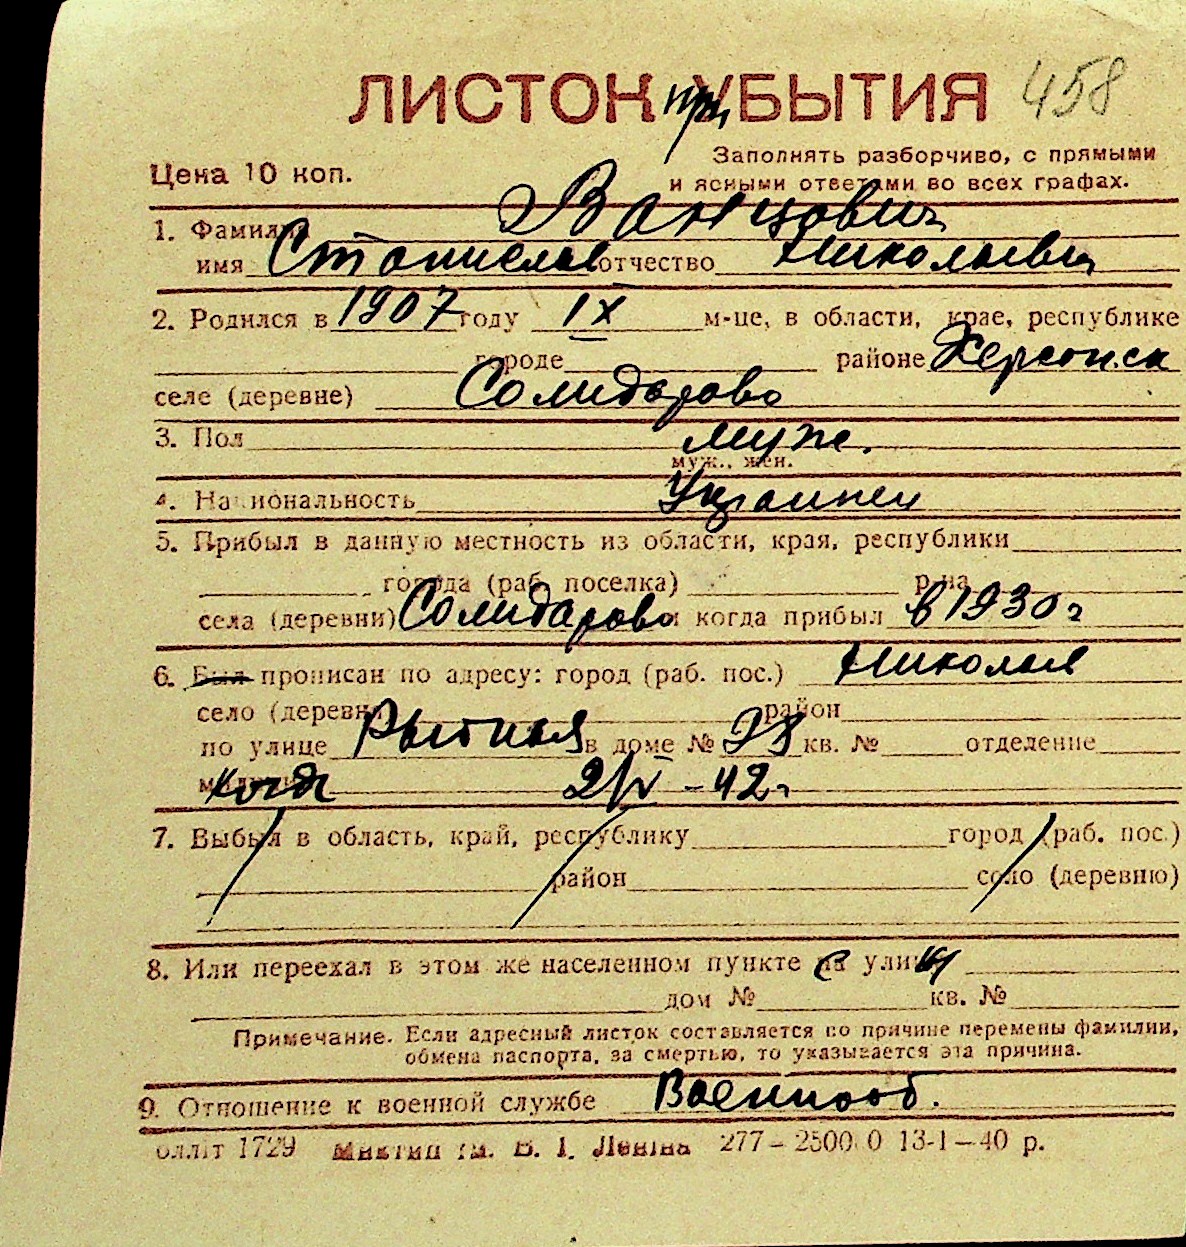 ЛИСТОК при УБЫТИЯ 458
Заполнять разборчиво, с прямыми
Цена 10 коп. и ясными ответами во всех графах.
1. Фамилия Ванцович
имя Станислав отчество Николаевич
2. Родился в 1907 году IX м-це, в области, крае, республике
городе районе Херсонск
селе (деревне) Солидарово
3. Пол муж.
муж., жен.
4. Национальность Украинец
5. Прибыл в данную местность из области, края, республики
города (раб. поселка) р-на
села (деревни) Солидарово и когда прибыл в 1930 г
6. Был прописан по адресу: город (раб. пос.) Николаев
село (деревня) район
по улице Рыбная в доме № 28 кв. № отделение
когда 2/IV - 42 г
7. Выбыл в область, край, республику город (раб. пос.)
район село (деревню)
8. Или переехал в этом же населенном пункте с улицы
дом № кв. №
Примечание. Если адресный листок составляется по причине перемены фамилии,
обмена паспорта, за смертью, то указывается эта причина.
9. Отношение к военной службе Военнооб.
1729 В. І. Леніна 277—2500 0 13-1—40 р.